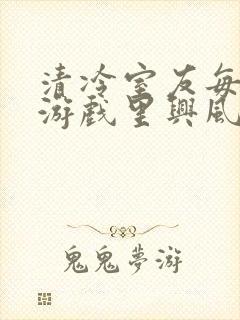 清冷室友每
游戲里興風
鬼鬼夢游